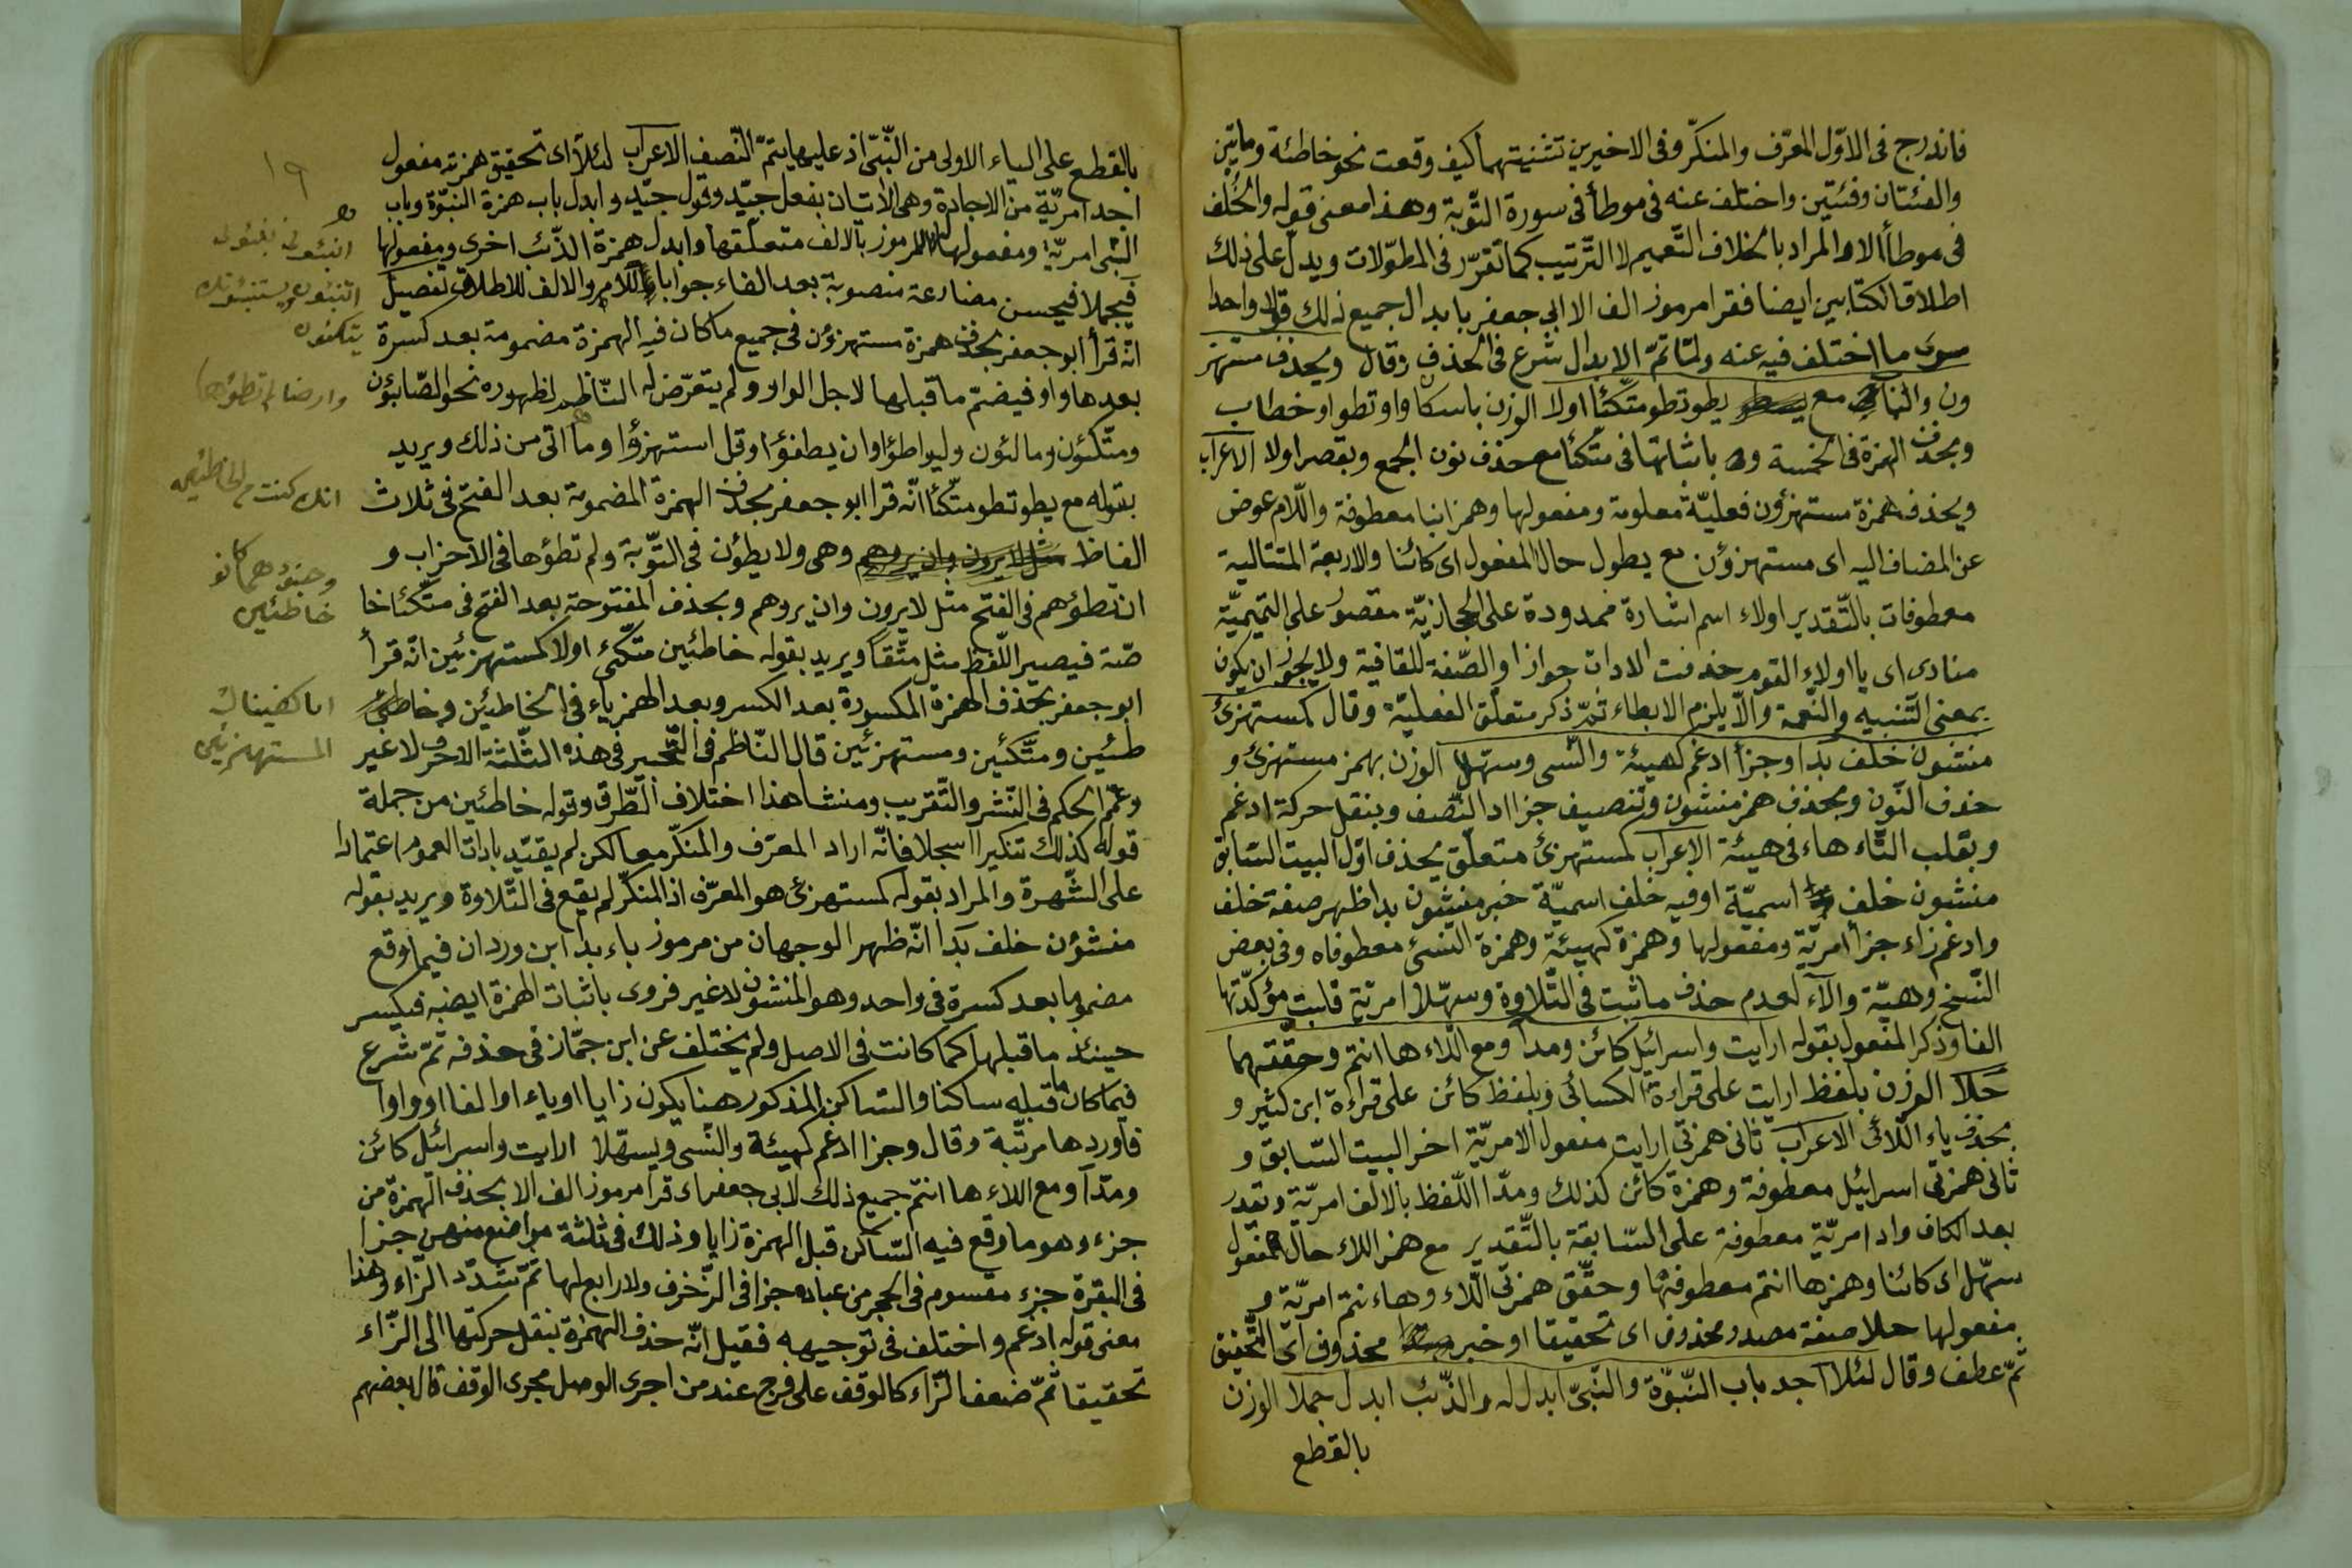 فاندرج فى الاوّل المعرّف والمنكّر وفى الاخيرين تثنيتهما كيف وقعت نحو خاطئة ومأتين
والفئتان وفئتين واختلف عنه فى موطأ فى سورة التّوبة وهذا معنى قوله والخُلف
فى موطأ الا والمراد بالخلاف التّعميم لا التّرتيب كما تقرّر فى المطوّلات ويدلّ على ذلك
اطلاق الكتابين ايضا فقرا مرموز الف الا ابى جعفر بابدال جميع ذلك قولا واحدا
سوى ما اختلف فيه عنه ولمّا تمّ الابدال شرع فى الحذف وقال ويحذف مستهز
ون والباب مع يطو تطو متّكئا اولا الوزن باسكان واو تطو او خطاب
وبحذف الهمزة فى الخمسة و باثباتها فى متّكئا مع حذف نون الجمع وبقصر اولا الاعراب
ويحذف همزة مستهزؤن فعليّة معلومة ومفعولها وهمز ابنا معطوفة واللّام عوض
عن المضاف اليه اى مستهزؤن مع يطو حال المفعول اى كائنا والاربعة المتتالية
معطوفات بالتّقدير اولاء اسم اشارة ممدودة على الحجازيّة مقصور على التميميّة
منادى اى يا اولاء القوم حذفت الادات جوازا والصّفة للقافية ولا يجوز ان يكون
بمعنى التّنبيه والنّعمة والاّ يلزم الايطاء ثمّ ذكر متعلّق الفعليّة وقال كمستهزئ
منشون خلف بدا وجزأ ادغم كهيئة والنّسى وسهّل الوزن بهمز مستهزئ و
حذف النّون وبحذف همز منشون وتنصيف جزا اد النّصف وبنقل حركة ادغم
وبقلب التّاء هاء فى هيئة الاعراب كمستهزئ متعلّق يحذف اوّل البيت السّابق
منشون خلف اسميّة او فيه خلف اسميّة خبر منشون بدا ظهر صفة خلف
وادغم زاء جزأ امريّة ومفعولها وهمزة كهيئة وهمزة النسئ معطوفاه وفى بعض
النّسخ وهيّة والاّء لعدم حذف ما ثبت فى التّلاوة وسهّلا امريّة قلبت مؤكّدتها
الفا وذكر المفعول بقوله ارايت واسرائيل كائن ومدّا ومع اللاّء ها انتم وحقّقهما
حلا الوزن بلفظ ارايت على قراءة الكسائى وبلفظ كائن على قراءة ابن كثير و
بحذف ياء اللّائى الاعراب ثانى همزتى ارايت مفعول الامريّة اخر البيت السّابق و
ثانى همزتى اسرائيل معطوفة وهمزة كائن كذلك ومدّا اللّفظ بالالف امريّة وتقدر
بعد الكاف واد امريّة معطوفة على السّابقة بالتّقدير مع همز اللاء حال مفعول
سهّل اى كائنا وهمزها انتم معطوفتها وحقّق همزتى اللّاء وهاء نتم امريّة و
مفعولها حلا صفة مصدر محذوف اى تحقيقا او خبر محذوف اى التّحقيق
ثمّ عطف وقال لئلا اجد باب النّبوّة والنّبىّ ابدل له والذّئب ابدل جملا الوزن
بالقطع
١٩
بالقطع على الياء الاولى من النّبىّ اذ عليها يتمّ النّصف الاعراب لئلا اى تحقيق همزته مفعول
اجد امريّة من الاجادة وهى الاتيان بفعل جيّد وقول جيّد وابدل باب همزة النبوّة وباب
النّبى امريّة ومفعولها المرموز بالالف متعلّقها وابدل همزة الذّئب اخرى ومفعولها
فيجملا فيحسن مضارعة منصوبة بعد الفاء جوابا للامر والالف للاطلاق تفصيل
انّه قرأ ابو جعفر بحذف همزة مستهزؤن فى جميع ما كان فيه الهمزة مضمومة بعد كسرة
بعدها واو فيضمّ ما قبلها لاجل الواو ولم يتعرّض له النّاظم لظهوره نحو الصّابؤن
ومتّكئون ومالئون وليواطؤا وان يطفؤا وقل استهزؤا وما اتى من ذلك ويريد
بقوله مع يطو تطو متّكئا انّه قرا ابو جعفر بحذف الهمزة المضمومة بعد الفتح فى ثلاث
الفاظ وهى ولا يطؤن فى التّوبة ولم تطؤها فى الاحزاب و
ان تطؤهم فى الفتح مثل لا يرون وان يروهم وبحذف المفتوحة بعد الفتح فى متّكئا خا
صّة فيصير اللّفظ مثل متّقا ويريد بقوله خاطئين متّكئ اولا كمستهزئين انّه قرأ
ابو جعفر بحذف الهمزة المكسورة بعد الكسر وبعد الهمز ياء فى الخاطئين وخا
طئين ومتّكئين ومستهزئين قال النّاظم فى التّحبير فى هذه الثّلثة الاحرف لا غير
وعمّم الحكم فى النّشر والتّقريب ومنشا هذا اختلاف الطّرق وقوله خاطئين من جملة
قوله كذلك تنكيرا اسجلا فانّه اراد المعرّف والمنكّر معا لكن لم يقيّد بادات العموم اعتمادا
على الشّهرة والمراد بقوله كمستهزئ هو المعرّف اذ المنكّر لم يقع فى التّلاوة ويريد بقوله
منشؤن خلف بدا انّه ظهر الوجهان من مرموز باء بدا ابن وردان فيما وقع
مضموما بعد كسرة فى واحد وهو المنشون لا غير فروى باثبات الهمزة ايضا فيكسر
حينئذ ما قبلها كما كانت فى الاصل ولم يختلف عن ابن جمّاز فى حذفه ثمّ شرع
فيما كان ما قبله ساكنا والساكن المذكور هنا يكون زايا او ياء او الفا او واوا
فاوردها مرتّبة وقال وجزا ادغم كهيئة والنّسى ويسهّلا ارايت واسرائل كائن
ومدّا ومع اللاء ها انتم جميع ذلك لابى جعفر اى قرا مرموز الف الا بحذف الهمزة من
جزء وهو ما وقع فيه السّاكن قبل الهمزة زايا وذلك فى ثلثة مواضع منهن جزا
فى البقرة جزء مقسوم فى الحجر من عباده جزا فى الزّخرف ولا رابع لها ثمّ تشدّد الزّاء وهذا
معنى قوله ادغم واختلف فى توجيهه فقيل انّه حذف الهمزة بنقل حركتها الى الزّاء
تحقيقا ثمّ ضعف الزّاء كالوقف على فرج عند من اجرى الوصل مجرى الوقف قال بعضهم
اتنبئون ويستنبئونك
يتكئون
وارضا لم تطؤها
انك كنت من الخاطئين
وجنودهما كانوا
خاطئين
انا كفيناك
المستهزئين